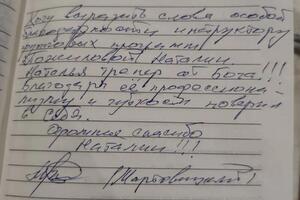 Хочу выразить слова особой
благодарности инструктору
групповых программ
Наталии.
Наталья тренер от Бога!!!
Благодаря её профессиона-
лизму и чуткости поверил
в себя.
Огромное спасибо
Наталии!!!